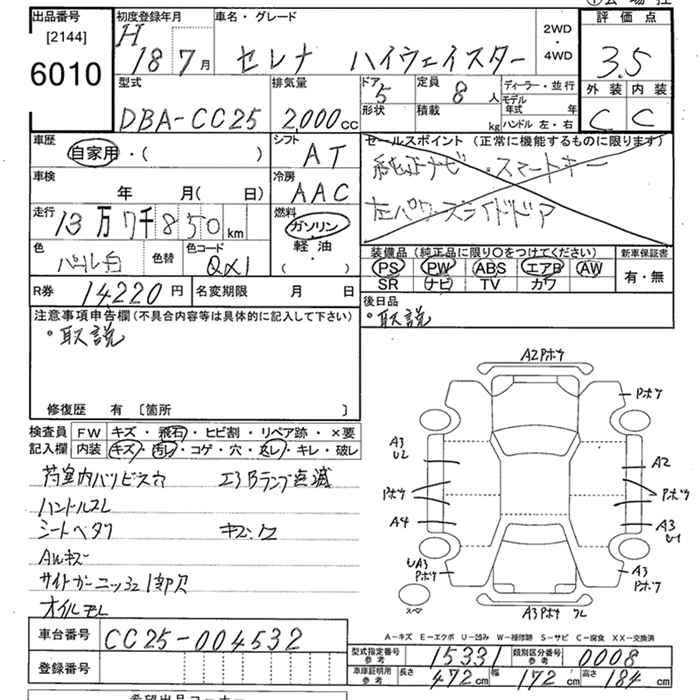 出品番号
[2144]
6010
初度登録年月
H 18 7月
車名・グレード
セレナ ハイウェイスター
2WD
・
4WD
評価点
3.5
外装 内装
C C
型式
DBA-CC25
排気量
2,000cc
ドア
5
形状
定員
8人
積載
kg
ディーラー・並行
モデル年式 年
ハンドル 左・右
車歴
自家用・( )
シフト
AT
車検
年 月( 日)
冷房
AAC
走行
13万7千850km
燃料
ガソリン
軽油
( ・ )
色
パール白
色替
色コード
QX1
セールスポイント (正常に機能するものに限ります)
純正ナビ ・スマートキー
左パワースライドドア
装備品(純正品に限り〇をつけてください)
PS PW ABS エアB AW
SR ナビ TV カワ
新車保証書
有・無
R券 14220円
名変期限 月 日
後日品
・取説
注意事項申告欄(不具合内容等は具体的に記入して下さい)
・取説
修復歴 有 [箇所 ]
検査員 FW キズ・飛石・ヒビ割・リペア跡・×要
記入欄 内装 キズ・汚レ・コゲ・穴・返レ・キレ・破レ
エアBランプ点滅
ハンドルスレ
シートヘタリ
AWキズ
オイルモレ
A2Pホツ
Pホツ
A3
U2
A2
Pホツ
Pホツ
A4
A3
U1
UA3
Pホツ
A3
Pホツ
A3Pホツ
A-キズ E-エクボ U-凹み W-補修跡 S-サビ C-腐食 XX-交換済
車台番号 CC25-004532
登録番号
型式指定番号
参考
15331
類別区分番号
参考
0008
車庫証明用
参考
長さ 472cm 幅 172cm 高さ 184cm
希望出品コーナー